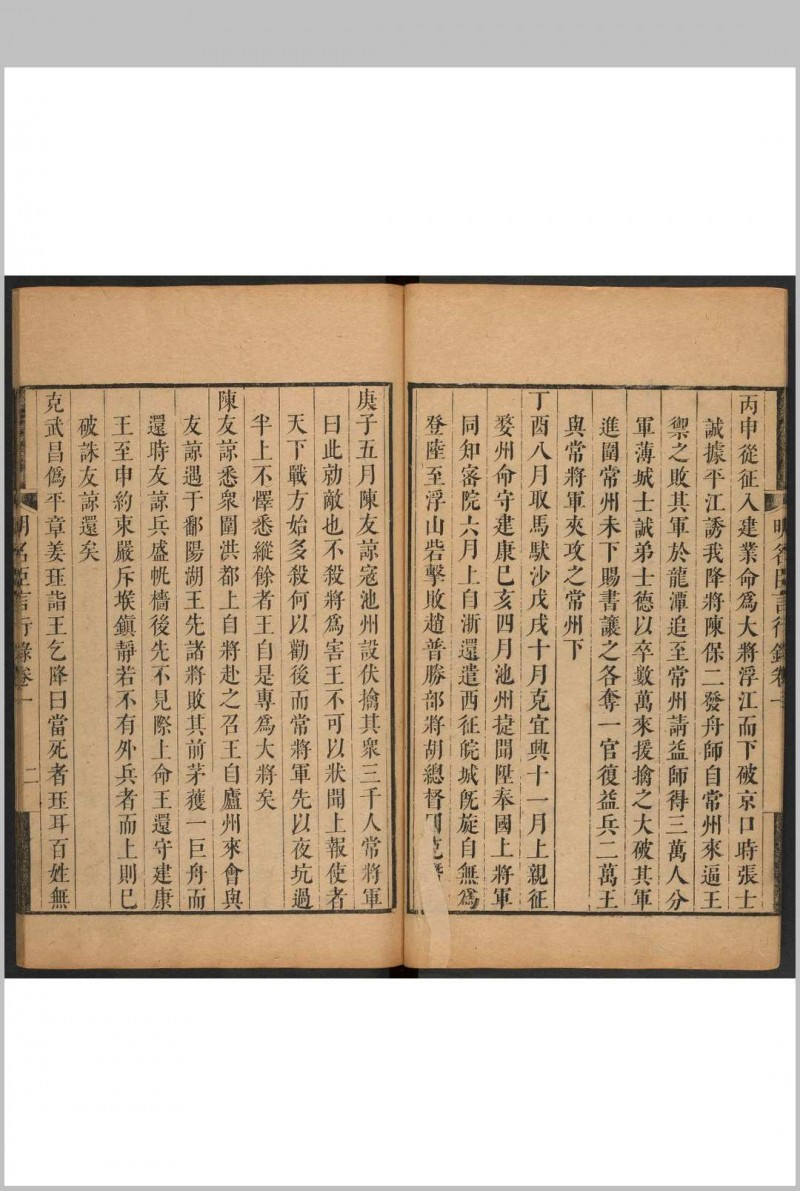 明名臣言行錄卷一
丙申從征入建業命爲大將浮江而下破京口時張士
誠據平江誘我降將陳保二發舟師自常州來逼王
禦之敗其軍於龍潭追至常州請益師得三萬人分
軍薄城士誠弟士德以卒數萬來援擒之大破其軍
進圍常州未下賜書讓之各奪一官復益兵二萬王
與常將軍夾攻之常州下
丁酉八月取馬馱沙戊戌十月克宜興十一月上親征
婺州命守建康巳亥四月池州捷聞陞奉國上將軍
同知密院六月上自浙還遣西征皖城旣旋自無爲
登陸至浮山砦擊敗趙普勝部將胡總督
庚子五月陳友諒寇池州設伏擒其衆三千人常將軍
曰此勍敵也不殺將爲害王不可以狀聞上報使者
天下戰方始多殺何以勸後而常將軍先以夜坑過
半上不懌悉縱餘者王自是專爲大將矣
陳友諒悉衆圍洪都上自將赴之召王自廬州來會與
友諒遇于鄱陽湖王先諸將敗其前茅獲一巨舟而
還時友諒兵盛帆檣後先不見際上命王還守建康
王至申約束嚴斥堠鎮靜若不有外兵者而上則巳
破誅友諒還矣
克武昌僞平章姜玨詣王乞降曰當死者玨耳百姓無
明名臣言行錄卷一 二